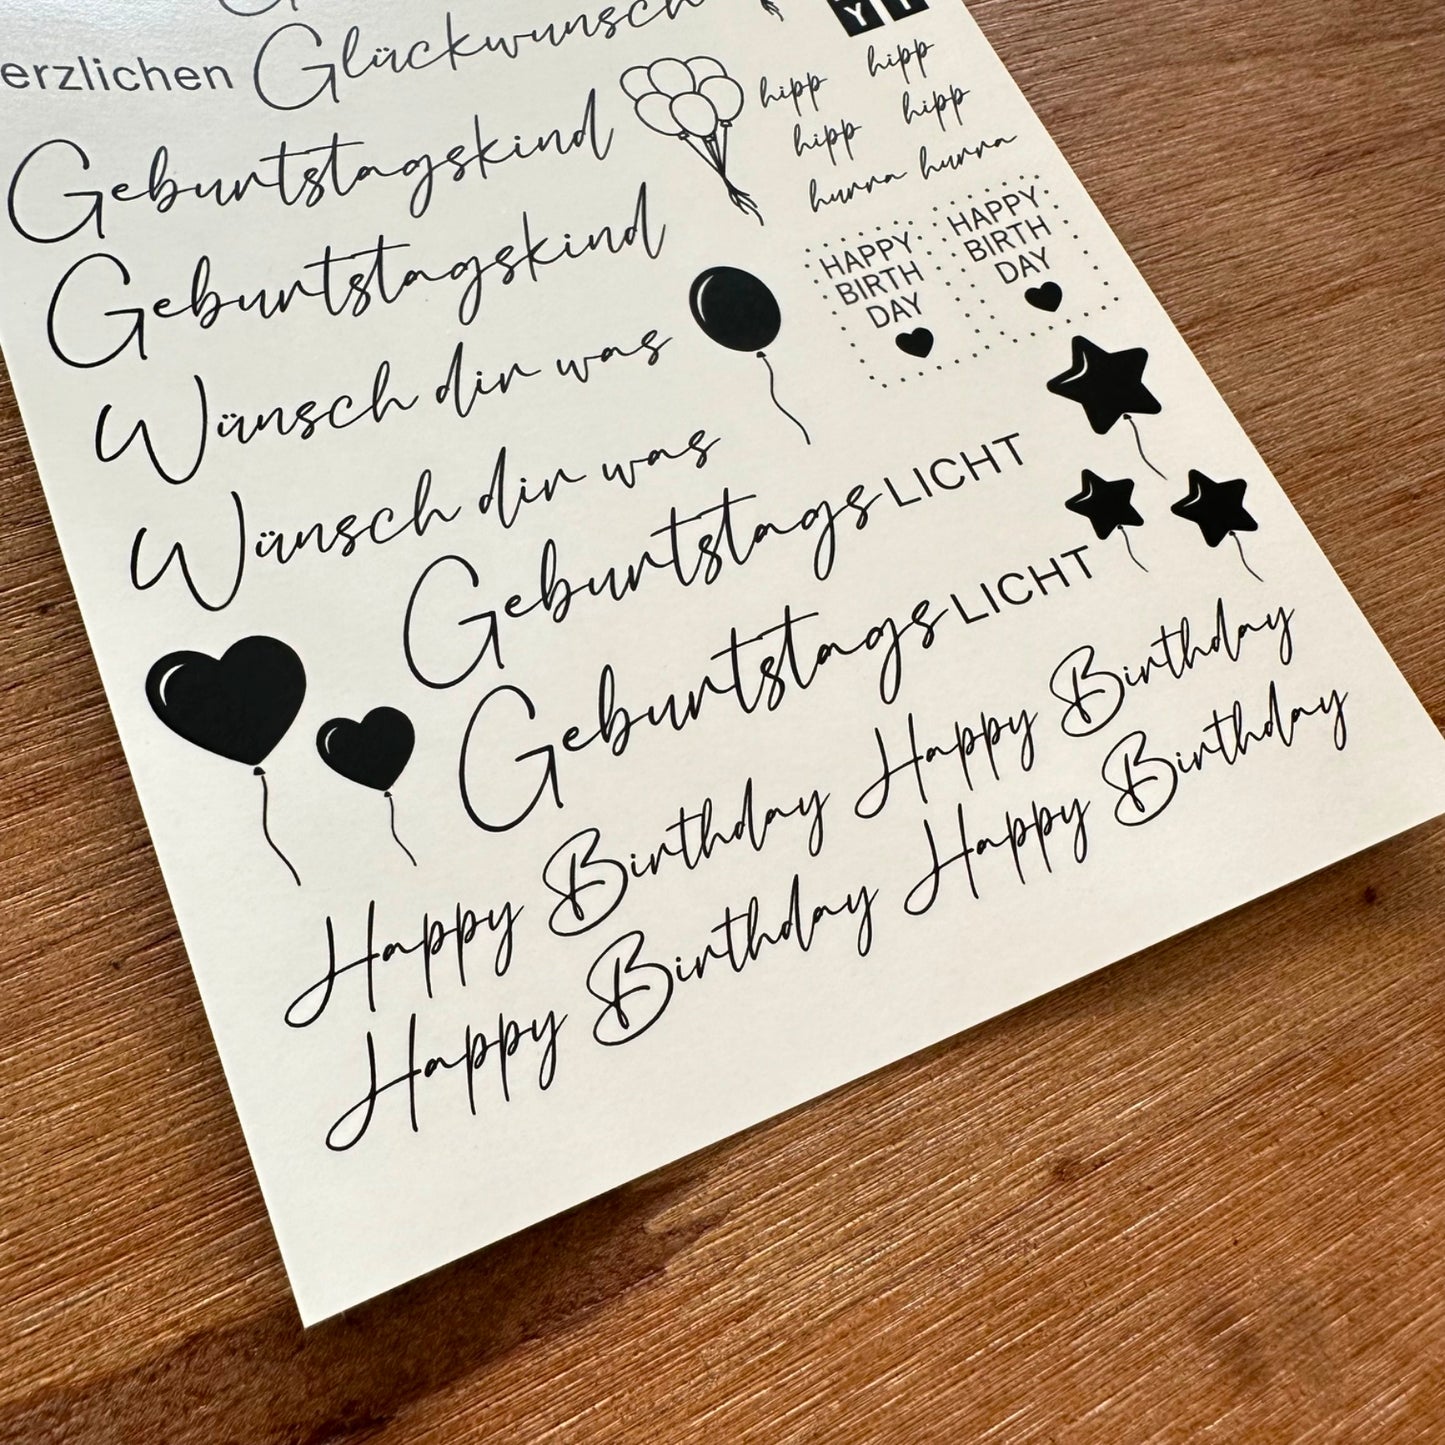 erzlichen Glückwunsch
Y
hipp hipp
hipp hipp
hurra hurra
Geburtstagskind
Geburtstagskind
HAPPY
BIRTH
DAY
HAPPY
BIRTH
DAY
Wünsch dir was
Wünsch dir was
GeburtstagsLICHT
GeburtstagsLICHT
Happy Birthday Happy Birthday
Happy Birthday Happy Birthday